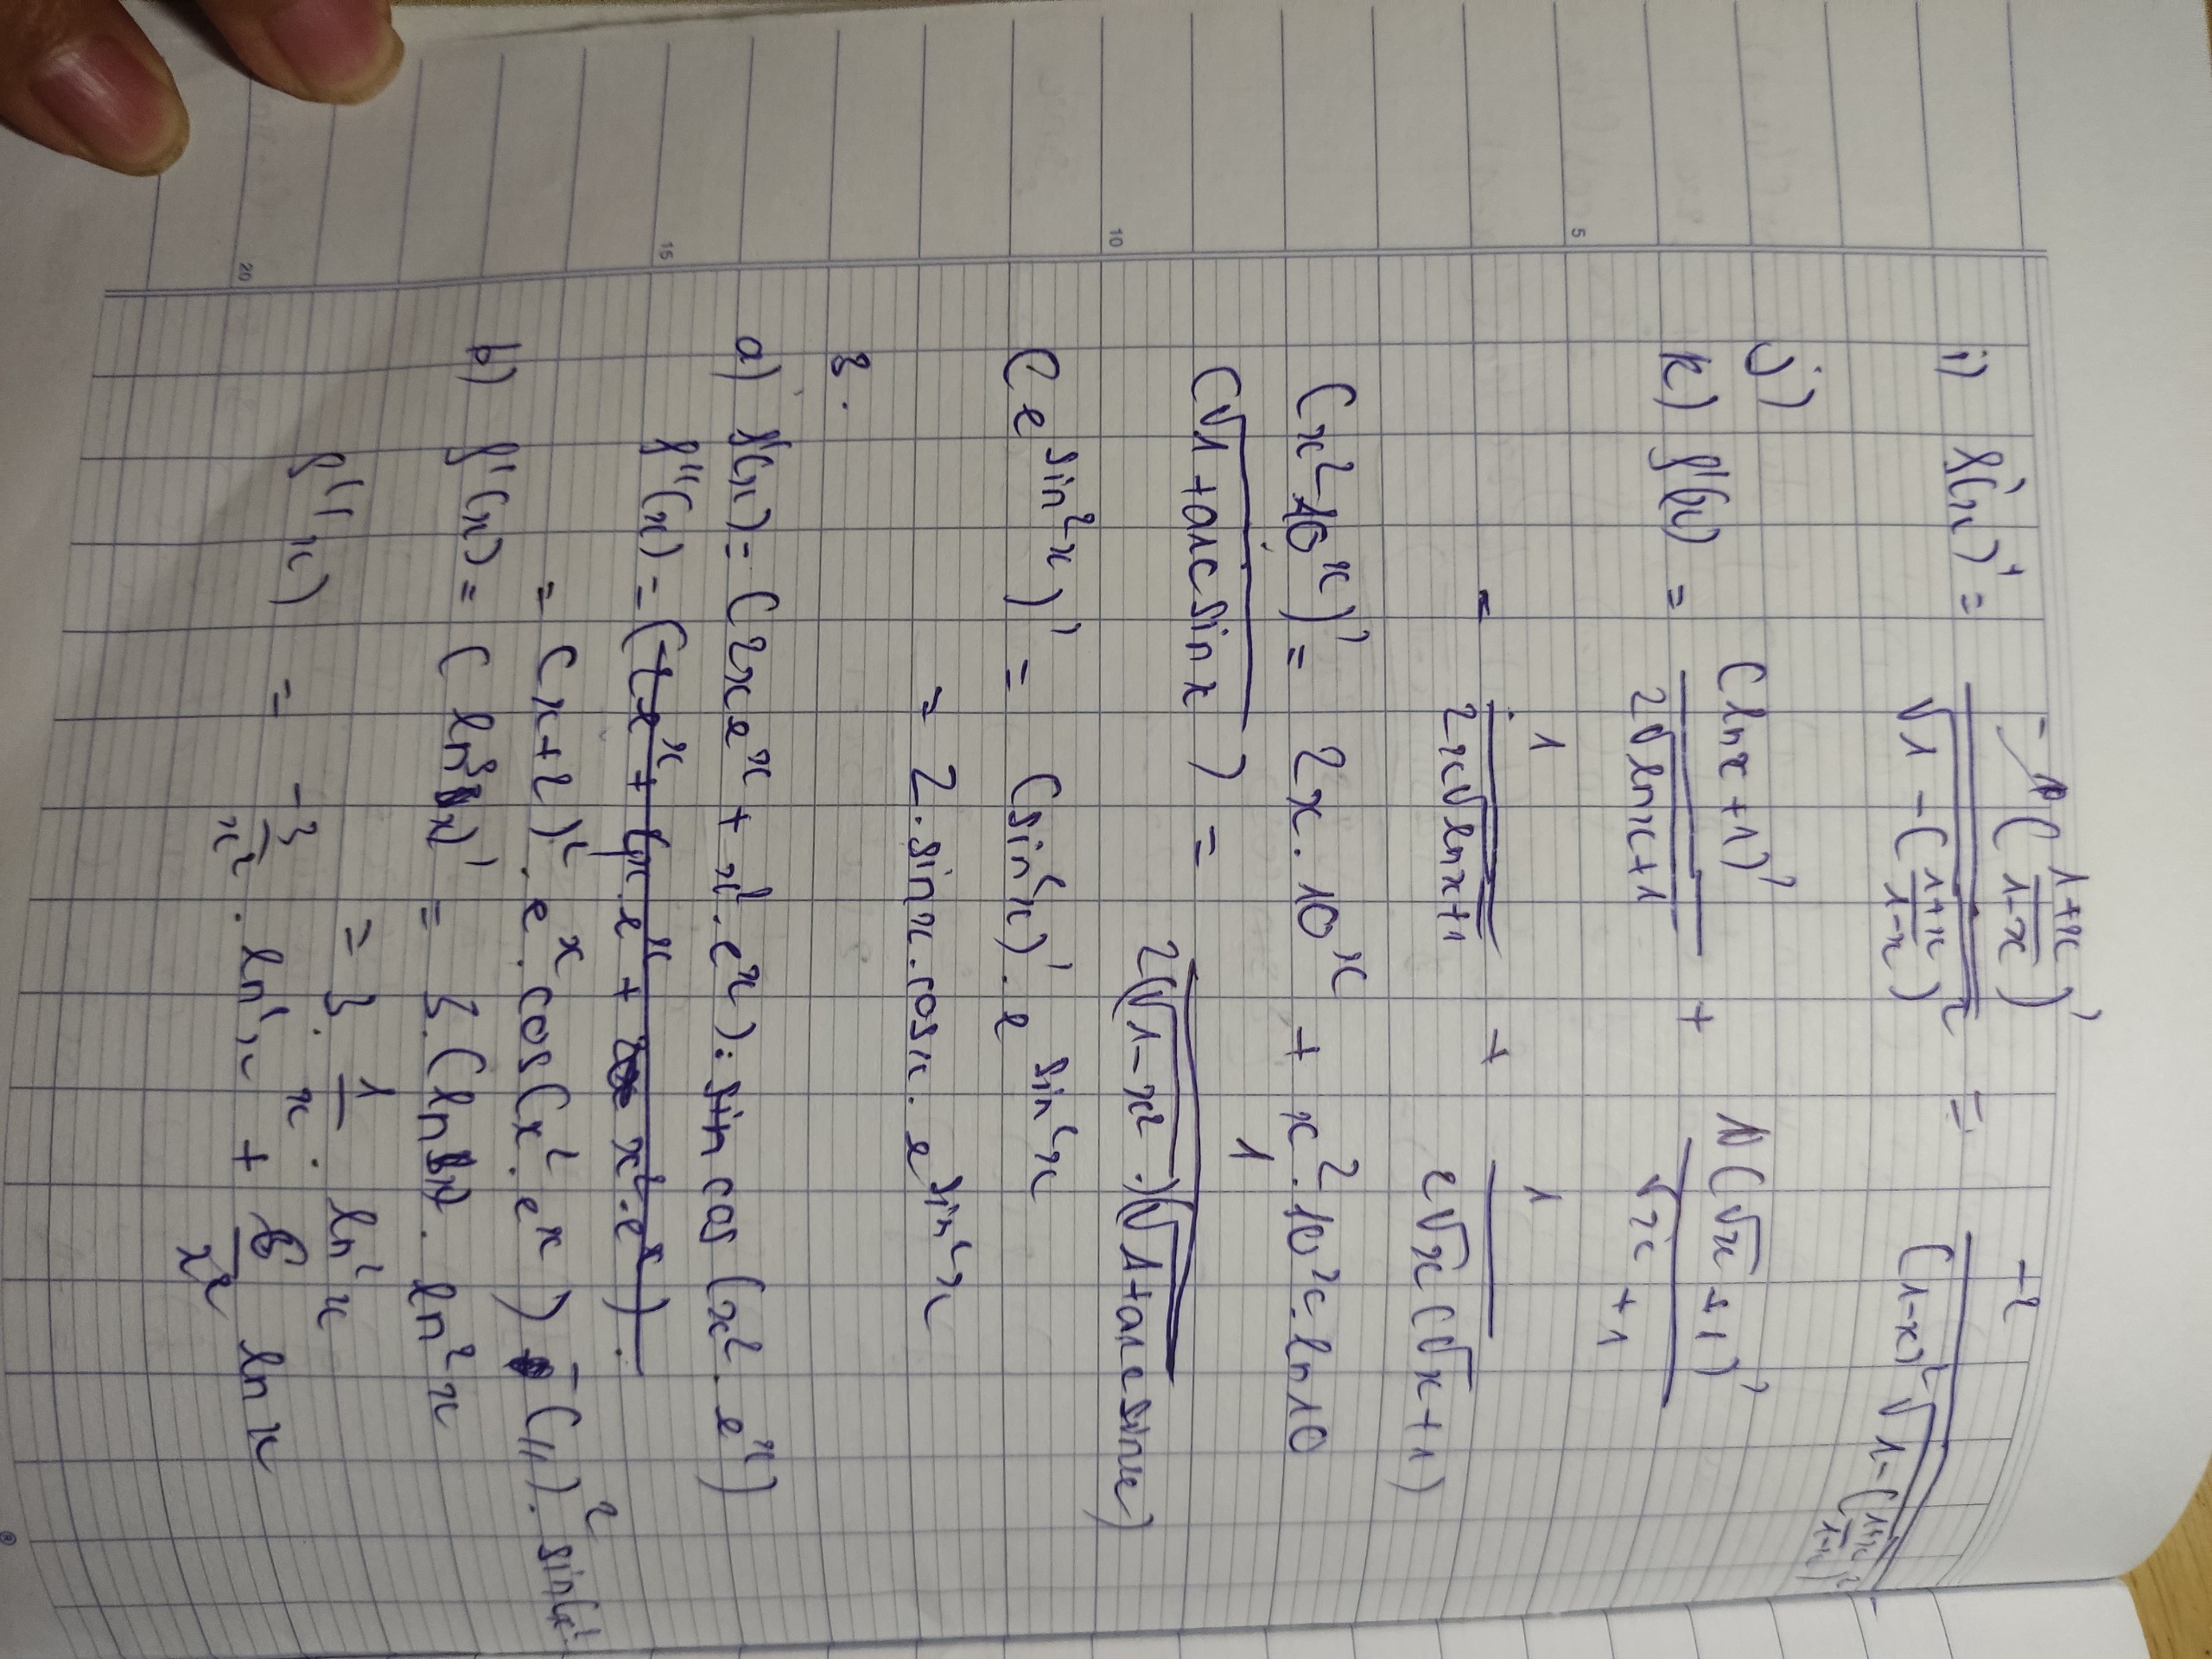 i) f'(x)' = -(\frac{1+x}{1-x})' / \sqrt{1-(\frac{1+x}{1-x})^2} = -2 / (1-x)^2 \sqrt{1-(\frac{1+x}{1-x})^2}
j)
k) f'(x) = (ln x+1)' / 2\sqrt{ln x+1} + (\sqrt{x}+1)' / \sqrt{x}+1
= 1 / 2x\sqrt{ln x+1} + 1 / 2\sqrt{x}(\sqrt{x}+1)
(x^2 10^x)' = 2x . 10^x + x^2 . 10^x . ln 10
(\sqrt{1+arcsin x}) = 1 / 2(\sqrt{1-x^2} .)(\sqrt{1+arcsin x})
(e^{sin^2 x})' = (sin^2 x)' . e^{sin^2 x}
= 2 . sin x . cos x . e^{sin^2 x}
3.
a) f'(x) = (2x e^x + x^2 . e^x) . cos (x^2 . e^x)
f''(x) =
= (x+2)^2 . e^x . cos(x^2 . e^x) - (11)^2 . sin(x^2
b) f'(x) = (ln^3 x)' = 3 . (ln x)' . ln^2 x
= 3 . \frac{1}{x} . ln^2 x
f''(x) = \frac{-3}{x^2} . ln^2 x + \frac{6}{x^2} ln x
5
10
15
20